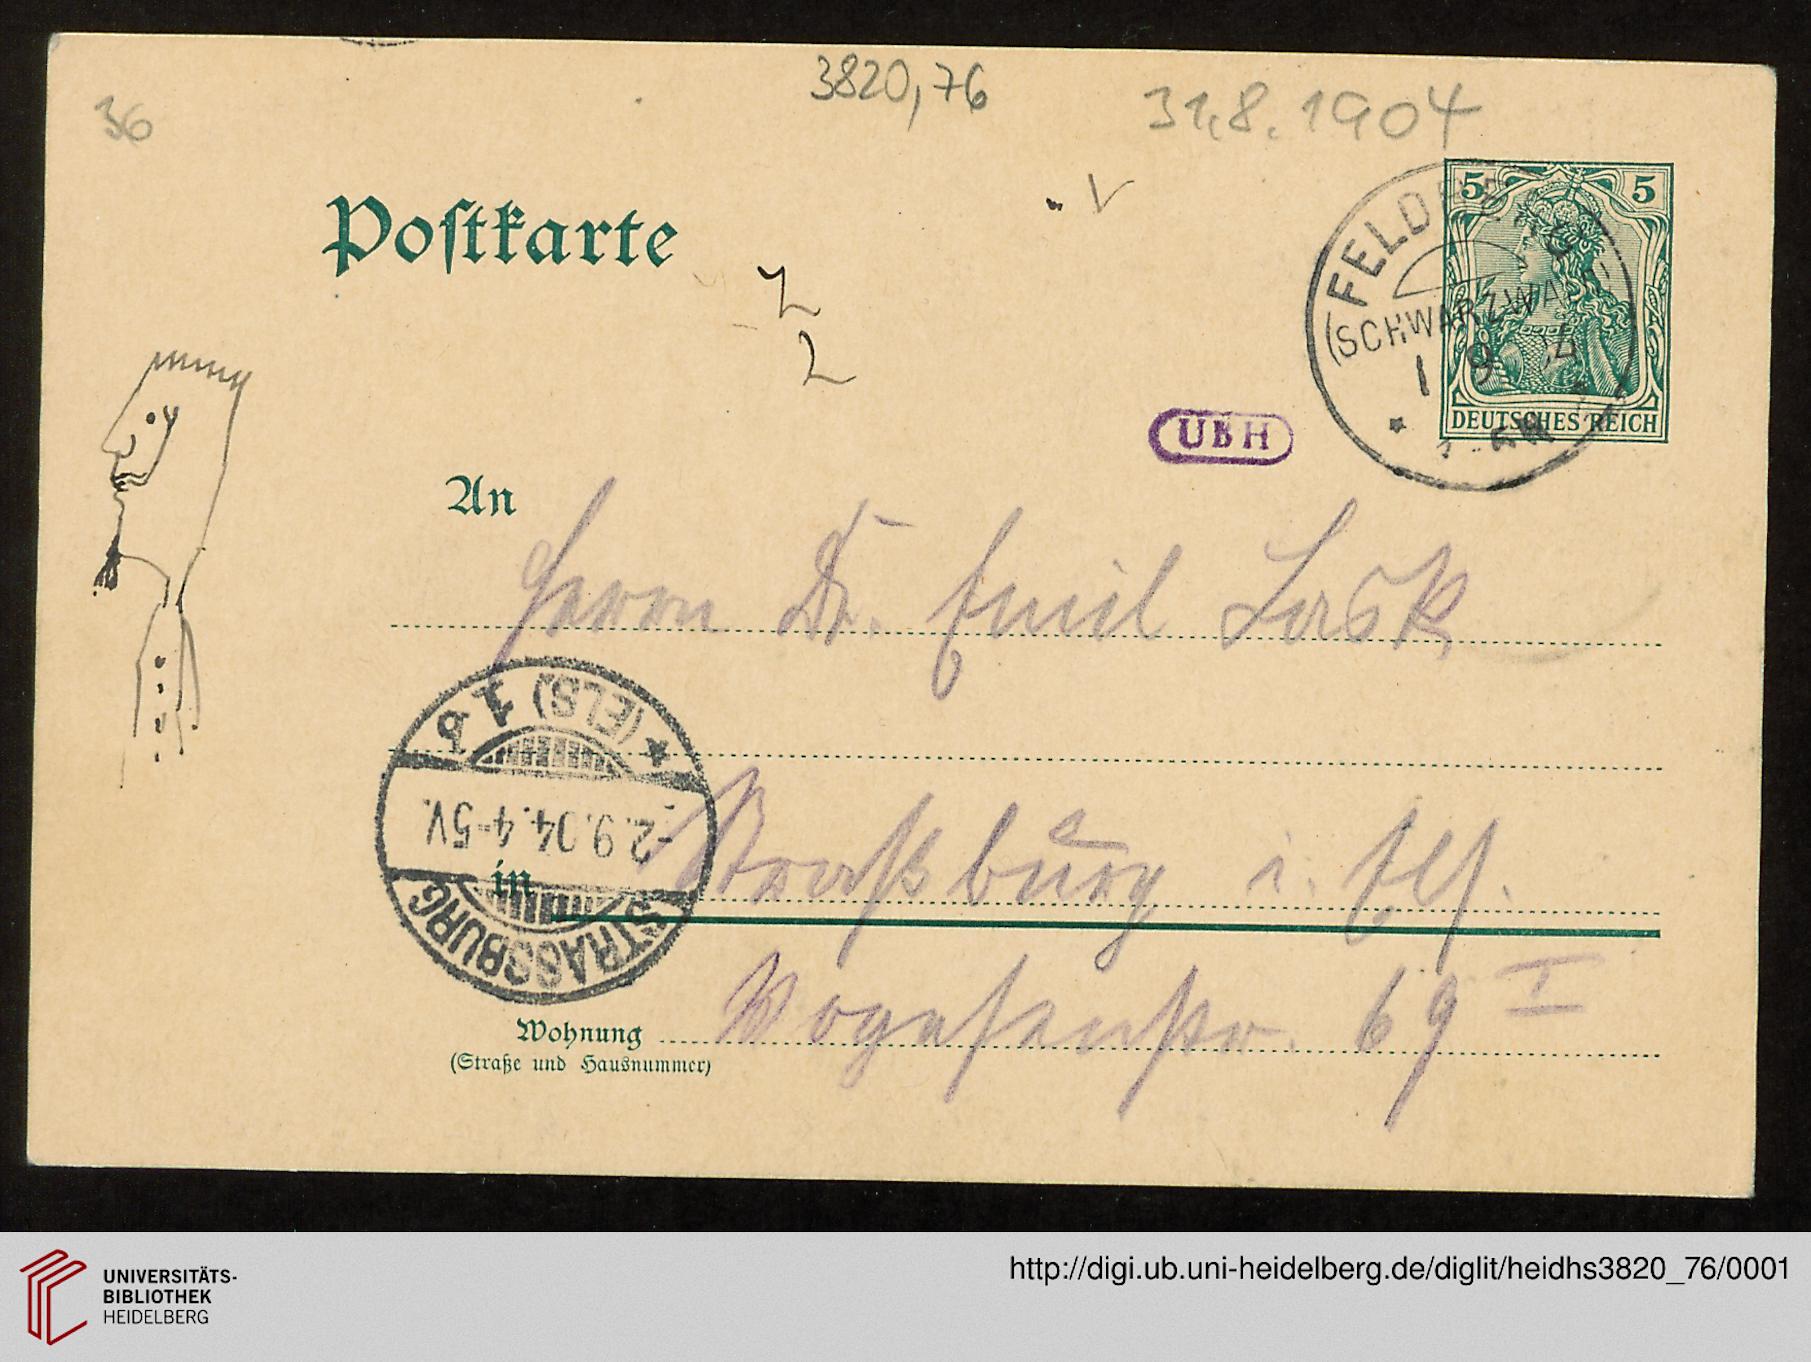 36
3820,76
31.8.1904
Postkarte
5 5
FELD
(SCHWARZWA
1 9
DEUTSCHES REICH
UBH
An
Herrn Dr. Emil Lask
(ELS) 1 b
-2.9.04.4-5V.
STRASSBURG
in Straßburg i. Els.
Wohnung Vogesenstr. 69 I
(Straße und Hausnummer)
UNIVERSITÄTS-
BIBLIOTHEK
HEIDELBERG
http://digi.ub.uni-heidelberg.de/diglit/heidhs3820_76/0001